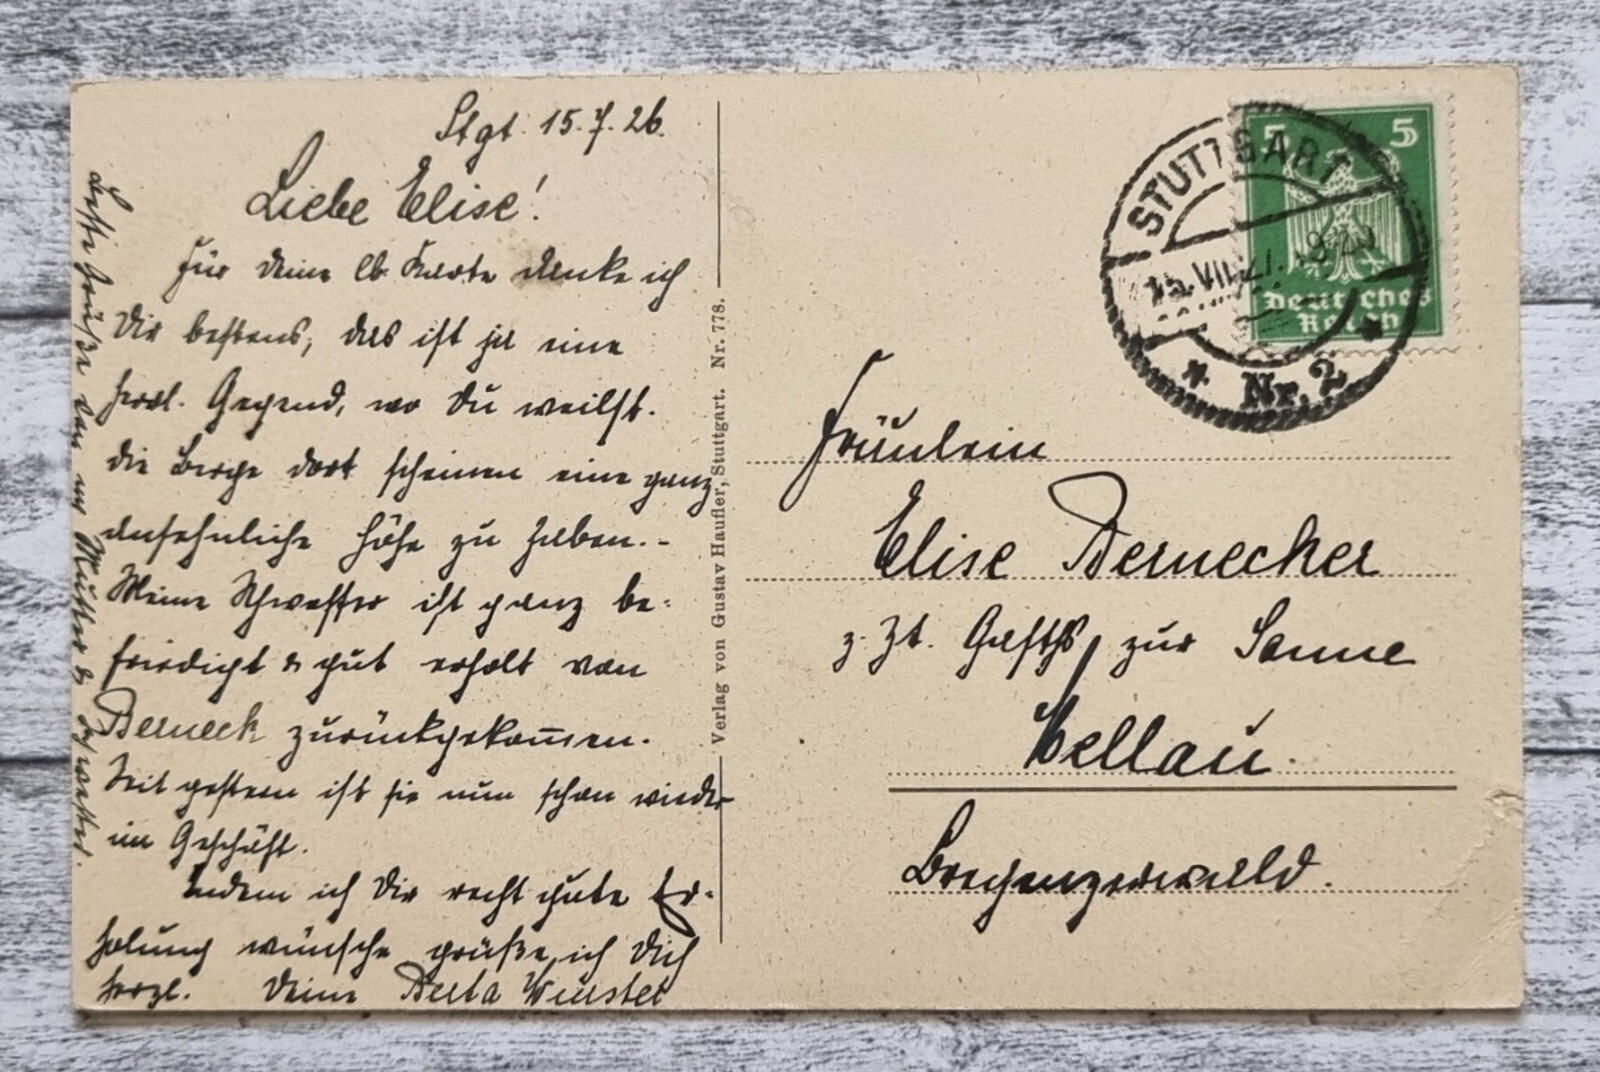 Stgt. 15.7.26.
Liebe Elise!
Für Deine lb. Karte danke ich
Dir bestens, das ist ja eine
herrl. Gegend, wo Du weilst.
Die Berge dort scheinen eine ganz
ansehnliche Höhe zu haben.-
Meine Schwester ist ganz be-
friedigt & gut erholt von
Berneck zurückgekommen.
Seit gestern ist sie nun schon wieder
im Geschäft.
Indem ich Dir recht gute Er-
holung wünsche grüße ich Dich
herzl. Deine Berta Wurster
Beste Grüße von m. Mutter & Schwester.
Verlag von Gustav Haufler, Stuttgart. Nr. 778.
5 5
Deutsches
Reich
STUTTGART
15.VII.27.
* Nr. 2 *
Fräulein
Elise Bernecker
z. Zt. Gasths zur Sonne
Mellau.
Bregenzerwald.